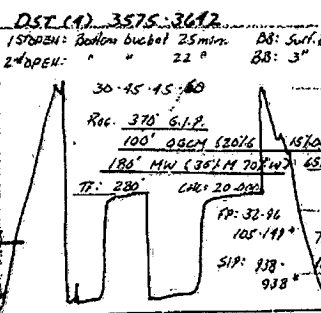 DST (4) 3575-3642
1st OPEN: Bottom bucket 25 min. BB: Surf.
2nd OPEN: " " 22 " BB: 3"
30-45-45-60
Rec. 370' G.I.P.
100' OGCM
180' MW
TF: 280' CHL: 20,000
FP: 32-96
105-149 #
SIP: 938-
938 #